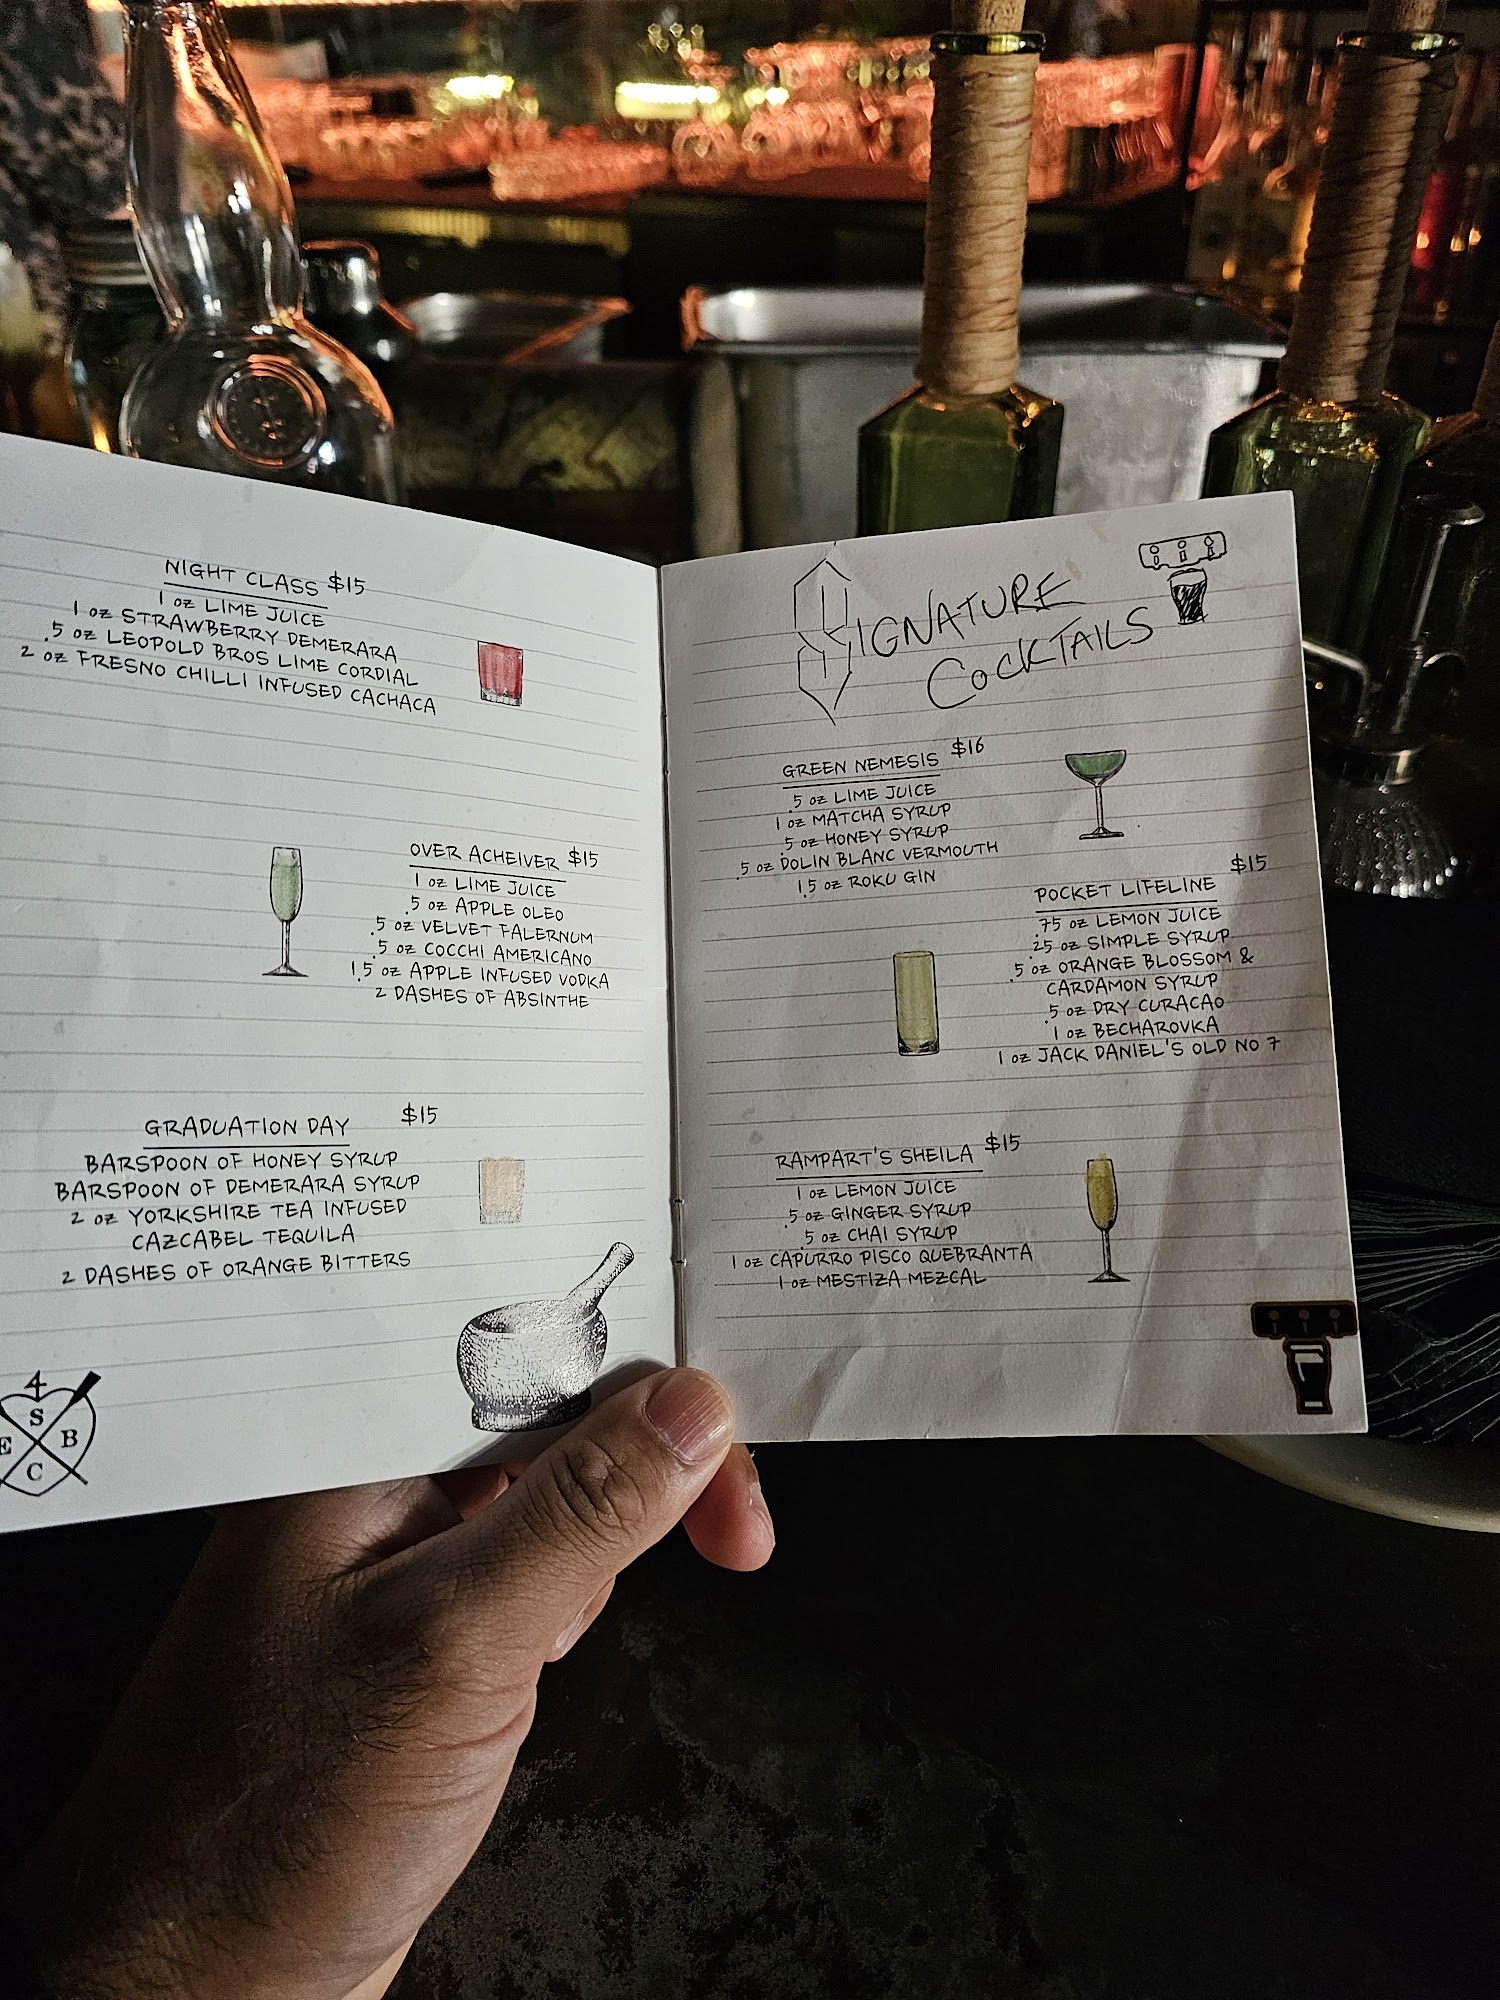 NIGHT CLASS $15
1 oz LIME JUICE
1 oz STRAWBERRY DEMERARA
.5 oz LEOPOLD BROS LIME CORDIAL
2 oz FRESNO CHILLI INFUSED CACHACA
OVER ACHEIVER $15
1 oz LIME JUICE
.5 oz APPLE OLEO
.5 oz VELVET FALERNUM
.5 oz COCCHI AMERICANO
1.5 oz APPLE INFUSED VODKA
2 DASHES OF ABSINTHE
GRADUATION DAY $15
BARSPOON OF HONEY SYRUP
BARSPOON OF DEMERARA SYRUP
2 oz YORKSHIRE TEA INFUSED
CAZCABEL TEQUILA
2 DASHES OF ORANGE BITTERS
4
S
E B
C
SIGNATURE
COCKTAILS
GREEN NEMESIS $16
.5 oz LIME JUICE
1 oz MATCHA SYRUP
.5 oz HONEY SYRUP
.5 oz DOLIN BLANC VERMOUTH
1.5 oz ROKU GIN
POCKET LIFELINE $15
.75 oz LEMON JUICE
.25 oz SIMPLE SYRUP
.5 oz ORANGE BLOSSOM &
CARDAMON SYRUP
.5 oz DRY CURACAO
1 oz BECHAROVKA
1 oz JACK DANIEL'S OLD NO 7
RAMPART'S SHEILA $15
1 oz LEMON JUICE
.5 oz GINGER SYRUP
.5 oz CHAI SYRUP
1 oz CAPURRO PISCO QUEBRANTA
1 oz MESTIZA MEZCAL